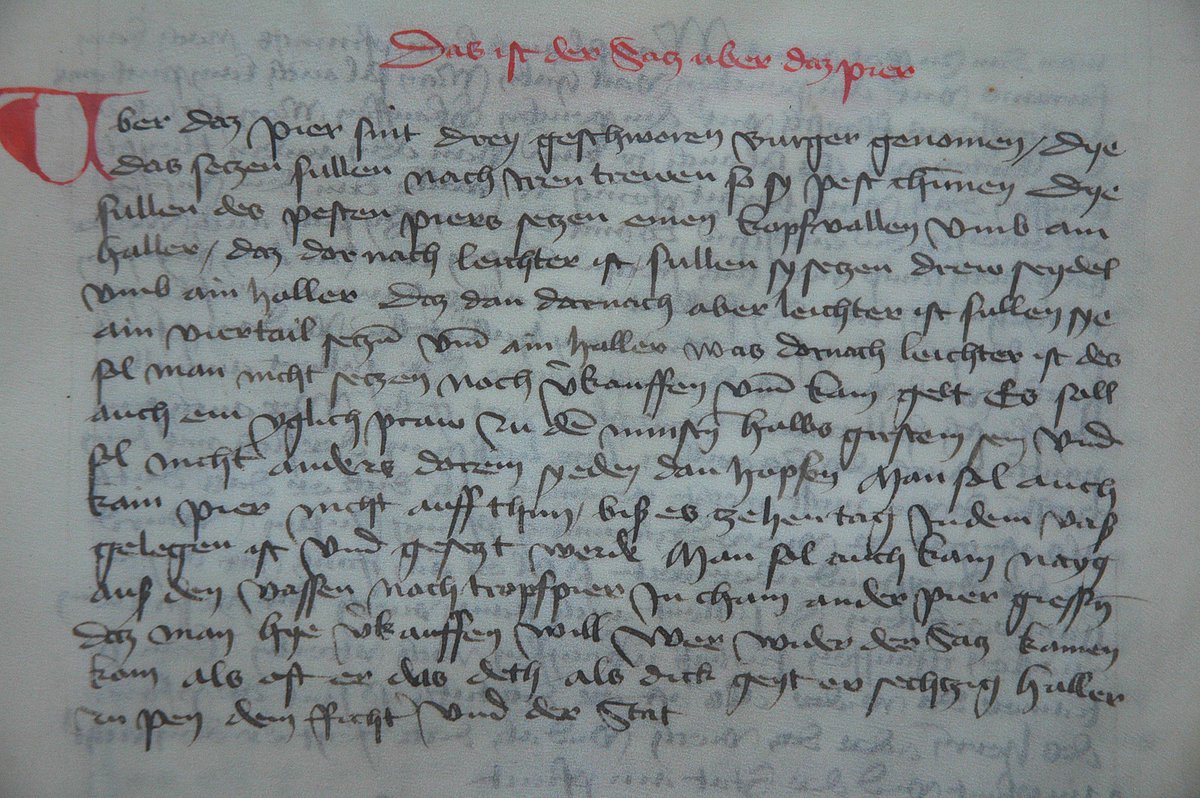 Das ist der Satz uber daz pier
Uber daz pier sint drey geschworen burger genomen / dye
das setzen sullen nach iren trewen so sy pest chūnen dye
sullen des pesten piers setzen einen kopf vallen vmb ain
haller / daz dor nach leichter ist sullen sy setzen drew seydel
vmb ain haller Daz dan darnach aber leichter ist sullen sye
ain viertail seczn̄ vm̄ ain haller was dornach leichter ist des
sol man nicht setzen noch v̾kauffen vm̄ kain gelt Es sall
auch ein yglich praw zu dē minstn̄ halbs gersten sein vnd
sol nicht anders dorein syeden dan hopfen Man sol auch
kain pier nicht auff thun / bis es zehen tag in dem vas
gelegen ist vnd gesetzt werde Man sol auch kain nayg
aus den vassen noch tropfpier in chain ander pier giessn̄
daz man hye v̾kauffen will Wer wider der Satz kainen
kom als oft er das deth als dick geyt er sechtzig haller
zu pen dem ficht̾ vnd der Stat